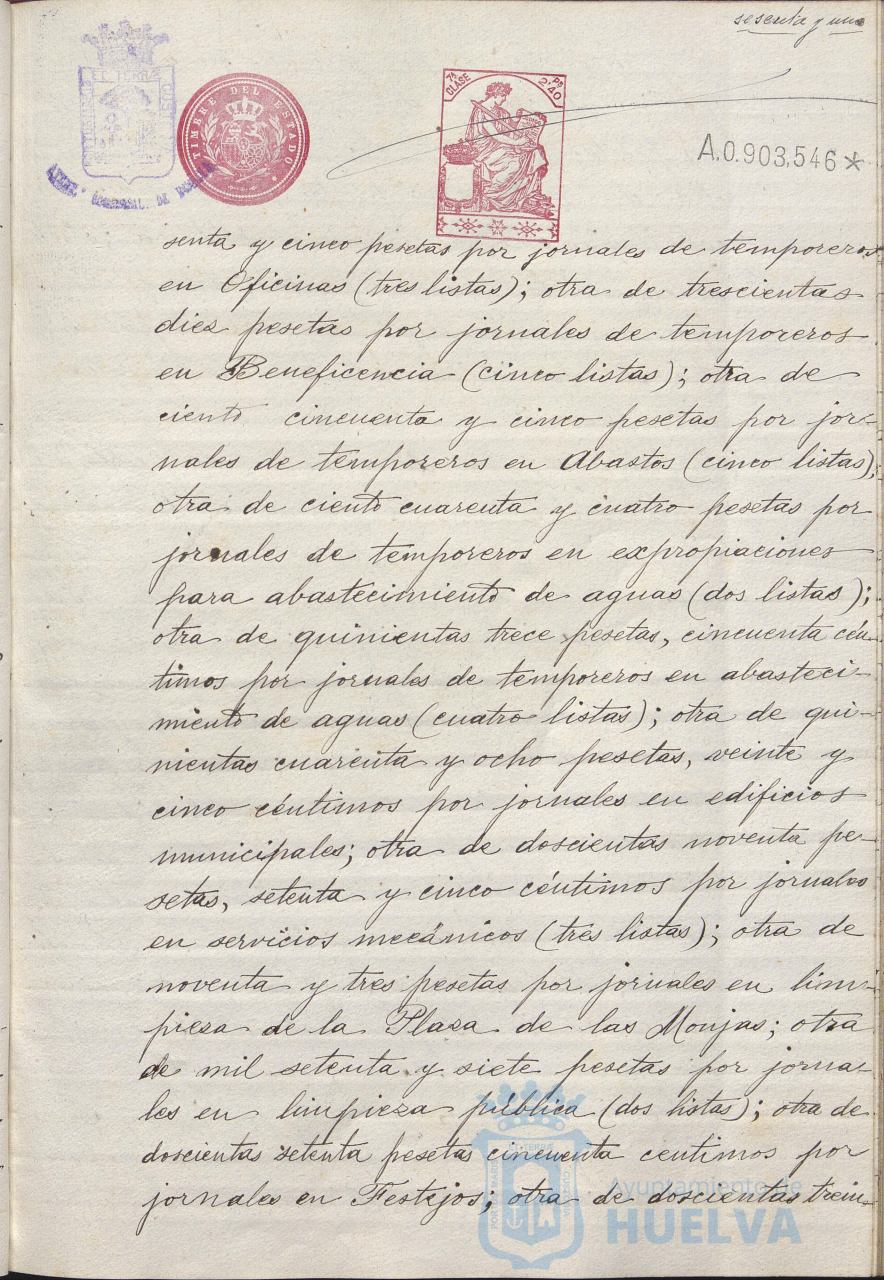 sesenta y uno
TIMBRE DEL ESTADO
7ª CLASE
2'40
A.0.903,546*
senta y cinco pesetas por jornales de temporeros
en Oficinas (tres listas); otra de trescientas
diez pesetas por jornales de temporeros
en Beneficencia (cinco listas); otra de
ciento cincuenta y cinco pesetas por jor-
nales de temporeros en Abastos (cinco listas),
otra de ciento cuarenta y cuatro pesetas por
jornales de temporeros en expropiaciones
para abastecimiento de aguas (dos listas);
otra de quinientas trece pesetas, cincuenta cén-
timos por jornales de temporeros en abasteci-
miento de aguas (cuatro listas); otra de qui-
nientas cuarenta y ocho pesetas, veinte y
cinco céntimos por jornales en edificios
municipales; otra de doscientas noventa pe-
setas, setenta y cinco céntimos por jornales
en servicios mecánicos (tres listas); otra de
noventa y tres pesetas por jornales en lim-
pieza de la Plaza de las Monjas; otra
de mil setenta y siete pesetas por jorna-
les en limpieza pública (dos listas); otra de
doscientas setenta pesetas cincuenta centimos por
jornales en Festejos; otra de doscientas trein-
Ayuntamiento de
HUELVA